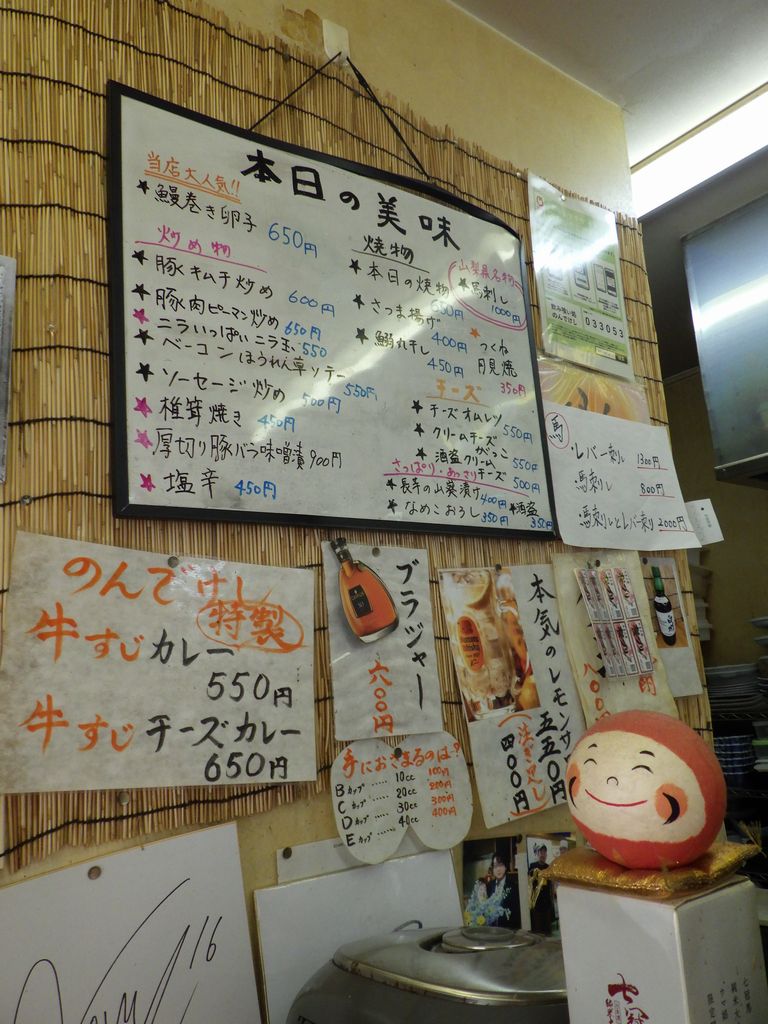 本日の美味
当店大人気!!
★鰻巻き卵子 650円
炒め物
★豚キムチ炒め 600円
★豚肉ピーマン炒め 650円
★ニラいっぱいニラ玉 550
★ベーコンほうれん草ソテー 550円
★ソーセージ炒め 500円
★椎茸焼き 450円
★厚切り豚バラ味噌漬 900円
★塩辛 450円
焼物
★本日の焼物
★さつま揚げ 400円
★鰯丸干し 450円
山梨県名物
★馬刺し 1000円
★つくね
月見焼 350円
チーズ
★チーズオムレツ 550円
★クリームチーズ
がっこ 550円
★酒盗クリーム
チーズ 500円
さっぱり・あっさり
★長芋の山葵漬け 400円
★なめこおろし 350円
★酒盗 350
033053
馬
・レバー刺し 1300円
・馬刺し 800円
・馬刺しとレバー刺し 2000円
のんでけし
特製
牛すじカレー
550円
牛すじチーズカレー
650円
ブラジャー
六〇〇円
手におさまるのは?
Bカップ ..... 10cc 100円
Cカップ ..... 20cc 200円
Dカップ ..... 30cc 300円
Eカップ ..... 40cc 400円
本気のレモンサ
五五〇円
(注ぎ足し
四〇〇円)
16